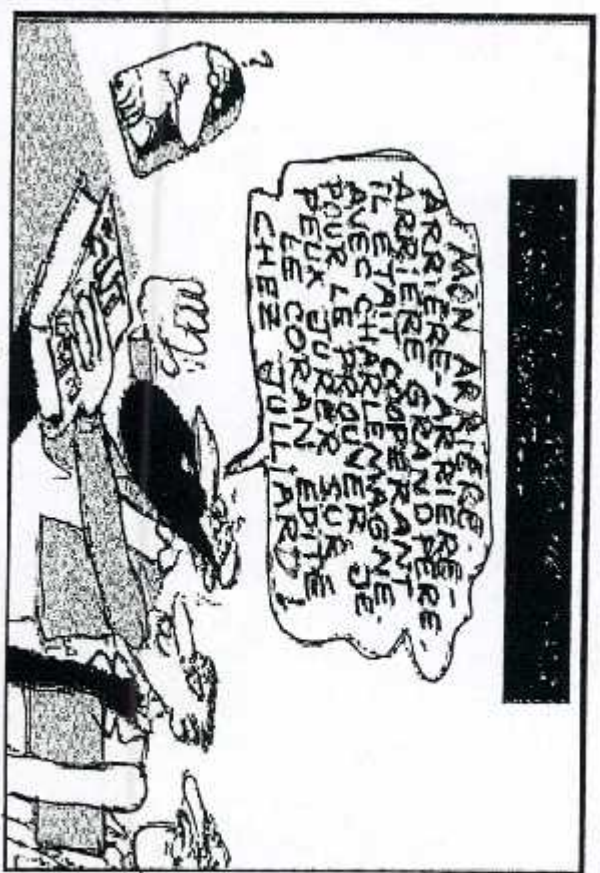 MON ARRIÈRE-
ARRIÈRE-ARRIÈRE-
ARRIÈRE GRANDPERE
IL ETAIT COOPERANT
AVEC CHARLEMAGNE.
POUR LE PROUVER, JE
PEUX JURER SUR
LE CORAN EDITÉ
CHEZ JULLIARD!
?